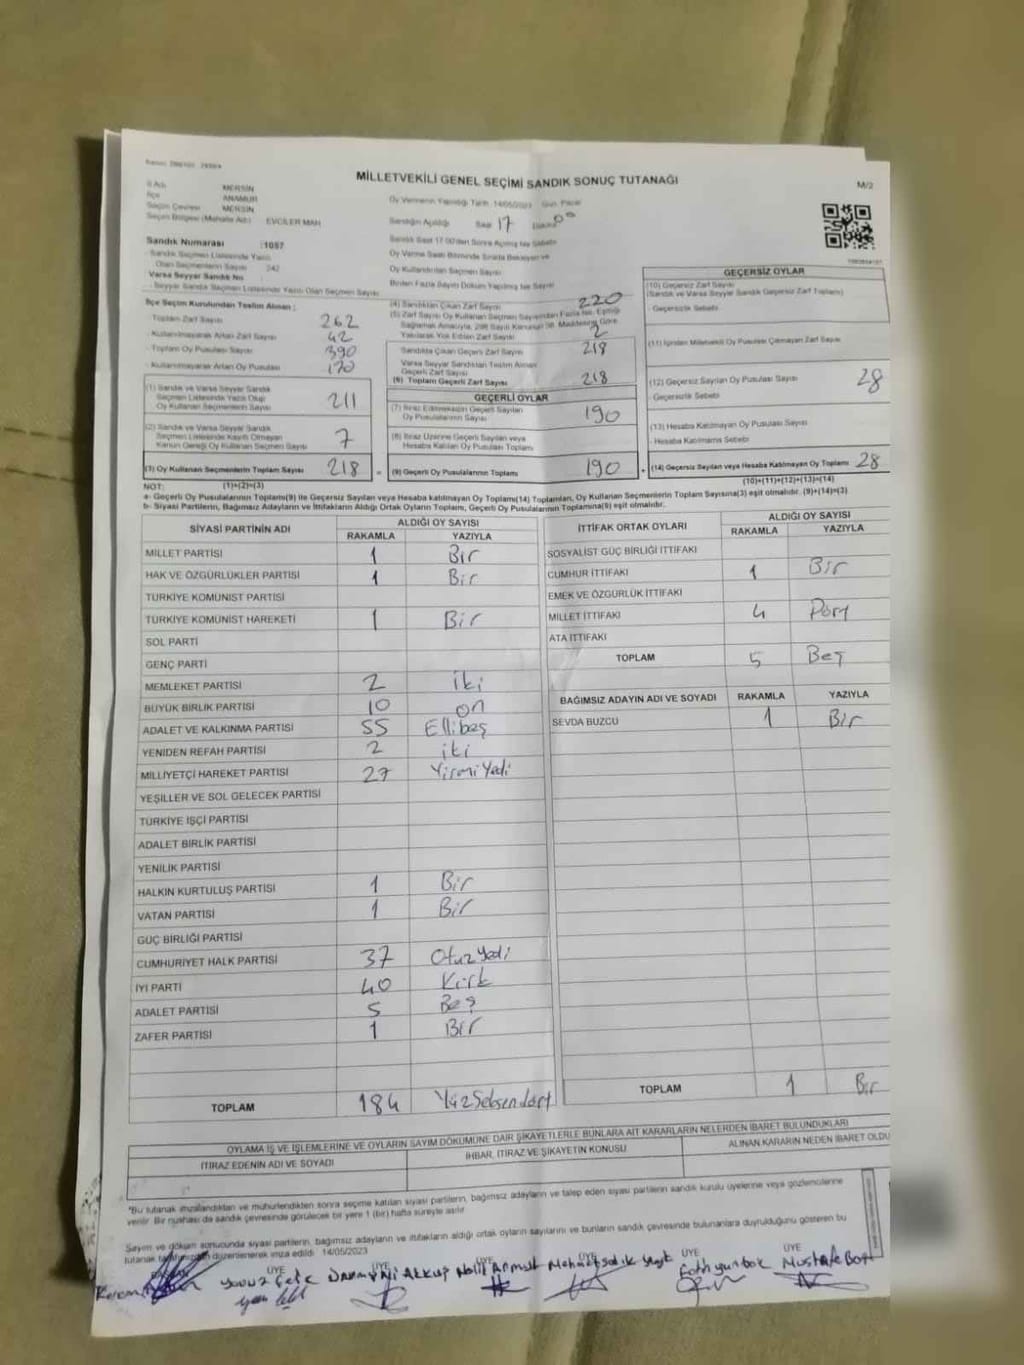 MİLLETVEKİLİ GENEL SEÇİMİ SANDIK SONUÇ TUTANAĞI
M/2
İl Adı MERSİN
İlçe ANAMUR
Seçim Çevresi MERSİN
Seçim Bölgesi (Mahalle Adı) EVCİLER MAH
Oy Vermenin Yapıldığı Tarih 14/05/2023 Gün Pazar
Sandığın Açıldığı Saat 17 Dakika 00
Sandık Saat 17:00'den Sonra Açılmış İse Sebebi
Sandık Numarası :1087
- Sandık Seçmen Listesinde Yazılı
Olan Seçmenlerin Sayısı 242
Varsa Seyyar Sandık No
- Seyyar Sandık Seçmen Listesinde Yazılı Olan Seçmen Sayısı
İlçe Seçim Kurulundan Teslim Alınan :
- Toplam Zarf Sayısı 262
- Kullanılmayarak Artan Zarf Sayısı 42
- Toplam Oy Pusulası Sayısı 390
- Kullanılmayarak Artan Oy Pusulası 170
(1) Sandık ve Varsa Seyyar Sandık
Seçmen Listesinde Yazılı Olup
Oy Kullanan Seçmenlerin Sayısı 211
(2) Sandık ve Varsa Seyyar Sandık
Seçmen Listesinde Kayıtlı Olmayan
Kanun Gereği Oy Kullanan Seçmen Sayısı 7
(3) Oy Kullanan Seçmenlerin Toplam Sayısı 218
NOT: (1)+(2)=(3)
(4) Sandıktan Çıkan Zarf Sayısı 220
(5) Zarf Sayısı Oy Kullanan Seçmen Sayısından Fazla İse, Eşitliği
Sağlamak Amacıyla, 298 Sayılı Kanunun 98. Maddesine Göre
Yakılarak Yok Edilen Zarf Sayısı 2
Sandıkta Çıkan Geçerli Zarf Sayısı 218
Varsa Seyyar Sandıktan Teslim Alınan
Geçerli Zarf Sayısı
(6) Toplam Geçerli Zarf Sayısı 218
GEÇERLİ OYLAR
(7) İtiraz Edilmeksizin Geçerli Sayılan
Oy Pusulalarının Sayısı 190
(8) İtiraz Üzerine Geçerli Sayılan veya
Hesaba Katılan Oy Pusulaları Toplamı
(9) Geçerli Oy Pusulalarının Toplamı 190
GEÇERSİZ OYLAR
(10) Geçersiz Zarf Sayısı
(Sandık ve Varsa Seyyar Sandık Geçersiz Zarf Toplamı)
- Geçersizlik Sebebi
(11) İçinden Milletvekili Oy Pusulası Çıkmayan Zarf Sayısı
(12) Geçersiz Sayılan Oy Pusulası Sayısı 28
Geçersizlik Sebebi
(13) Hesaba Katılmayan Oy Pusulası Sayısı
- Hesaba Katılmama Sebebi
(14) Geçersiz Sayılan veya Hesaba Katılmayan Oy Toplamı 28
(10)+(11)+(12)+(13)=(14)
a- Geçerli Oy Pusulalarının Toplamı(9) ile Geçersiz Sayılan veya Hesaba katılmayan Oy Toplamı(14) Toplamları, Oy Kullanan Seçmenlerin Toplam Sayısına(3) eşit olmalıdır. (9)+(14)=(3)
b- Siyasi Partilerin, Bağımsız Adayların ve İttifakların Aldığı Ortak Oyların Toplamı, Geçerli Oy Pusulalarının Toplamına(9) eşit olmalıdır.
SİYASİ PARTİNİN ADI ALDIĞI OY SAYISI
RAKAMLA YAZIYLA
MİLLET PARTİSİ 1 Bir
HAK VE ÖZGÜRLÜKLER PARTİSİ 1 Bir
TÜRKİYE KOMÜNİST PARTİSİ
TÜRKİYE KOMÜNİST HAREKETİ 1 Bir
SOL PARTİ
GENÇ PARTİ
MEMLEKET PARTİSİ 2 iki
BÜYÜK BİRLİK PARTİSİ 10 on
ADALET VE KALKINMA PARTİSİ 55 Ellibeş
YENİDEN REFAH PARTİSİ 2 iki
MİLLİYETÇİ HAREKET PARTİSİ 27 Yirmi Yedi
YEŞİLLER VE SOL GELECEK PARTİSİ
TÜRKİYE İŞÇİ PARTİSİ
ADALET BİRLİK PARTİSİ
YENİLİK PARTİSİ
HALKIN KURTULUŞ PARTİSİ 1 Bir
VATAN PARTİSİ 1 Bir
GÜÇ BİRLİĞİ PARTİSİ
CUMHURİYET HALK PARTİSİ 37 Otuz Yedi
İYİ PARTİ 40 Kırk
ADALET PARTİSİ 5 Beş
ZAFER PARTİSİ 1 Bir
TOPLAM 184 YüzSeksendört
İTTİFAK ORTAK OYLARI ALDIĞI OY SAYISI
RAKAMLA YAZIYLA
SOSYALİST GÜÇ BİRLİĞİ İTTİFAKI
CUMHUR İTTİFAKI 1 Bir
EMEK VE ÖZGÜRLÜK İTTİFAKI
MİLLET İTTİFAKI 4 Dört
ATA İTTİFAKI
TOPLAM 5 Beş
BAĞIMSIZ ADAYIN ADI VE SOYADI RAKAMLA YAZIYLA
SEVDA BUZCU 1 Bir
TOPLAM 1 Bir
OYLAMA İŞ VE İŞLEMLERİNE VE OYLARIN SAYIM DÖKÜMÜNE DAİR ŞİKAYETLERLE BUNLARA AİT KARARLARIN NELERDEN İBARET BULUNDUKLARI
İTİRAZ EDENİN ADI VE SOYADI İHBAR, İTİRAZ VE ŞİKAYETİN KONUSU ALINAN KARARIN NEDEN İBARET OLDU
*Bu tutanak imzalandıktan ve mühürlendikten sonra seçime katılan siyasi partilerin, bağımsız adayların ve talep eden siyasi partilerin sandık kurulu üyelerine veya gözlemcilerine
verilir. Bir nüshası da sandık çevresinde görülecek bir yere 1 (bir) hafta süreyle asılır
Sayım ve döküm sonucunda siyasi partilerin, bağımsız adayların ve ittifakların aldığı ortak oyların sayılarını ve bunların sandık çevresinde bulunanlara duyrulduğunu gösteren bu
tutanak düzenlenerek imza edildi. 14/05/2023
ÜYE ÜYE ÜYE ÜYE ÜYE